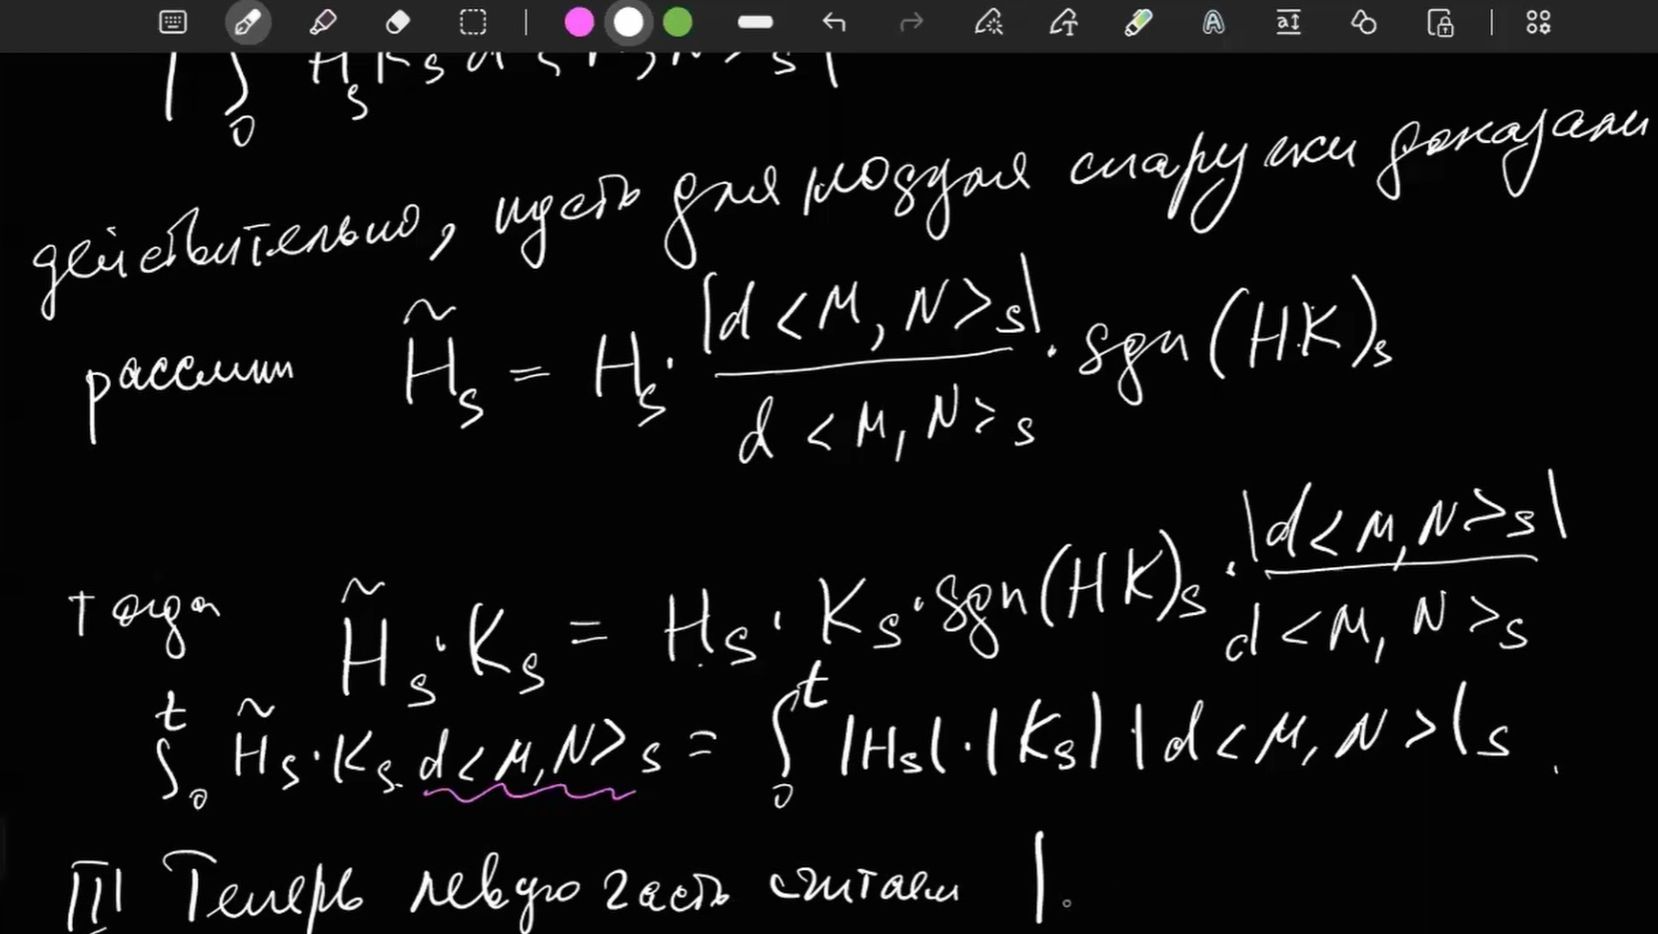 | ∫₀ H_s K_s d<M, N>_s |
действительно, пусть для модуля снаружи доказали
рассмотрим H̃_s = H_s · |d<M, N>_s| / d<M, N>_s · sgn(HK)_s
тогда H̃_s · K_s = H_s · K_s · sgn(HK)_s · |d<M, N>_s| / d<M, N>_s
∫₀ᵗ H̃_s · K_s d<M, N>_s = ∫₀ᵗ |H_s| · |K_s| |d<M, N>|_s .
III Теперь левую часть считаем |